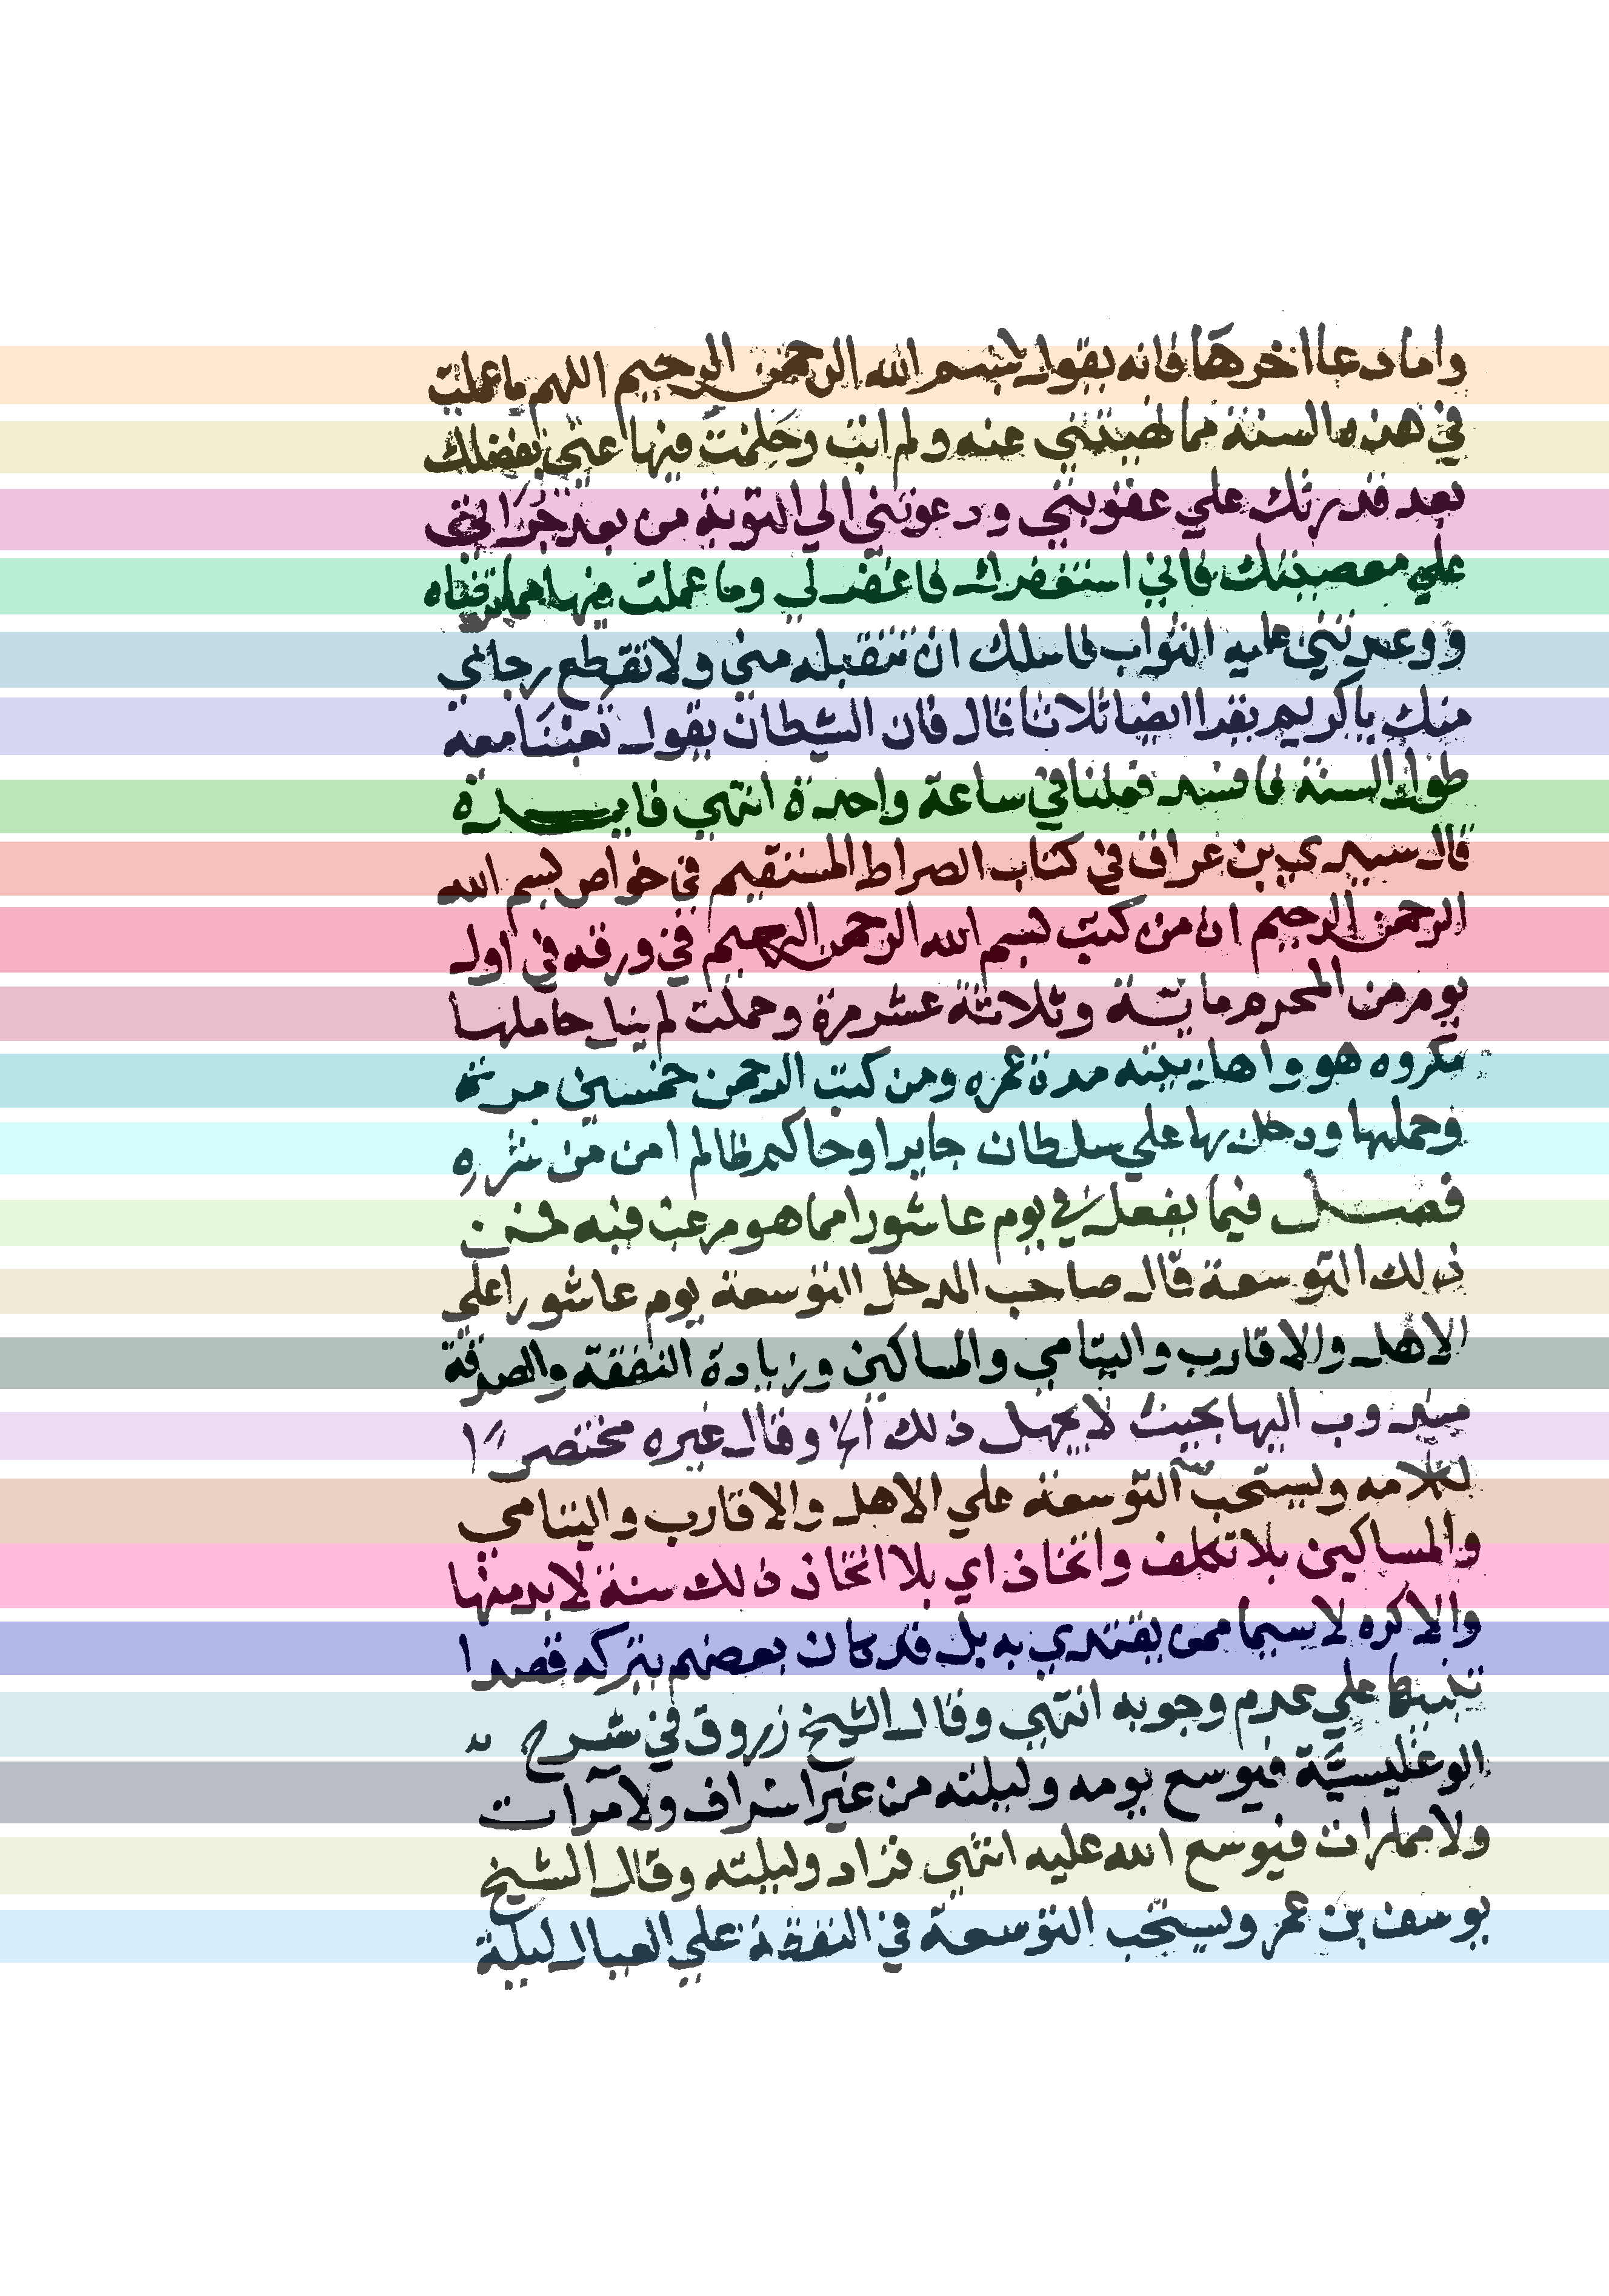 واما دعا اخرها فانه يقول بسم الله الرحمن الرحيم اللهم ما عملت
في هذه السنة مما نهيتني عنه ولم اتب وحلمت فيها عني بفضلك
بعد قدرتك علي عقوبتي ودعوتني الي التوبة من بعد جراتي
علي معصيتك فاني استغفرك فاغفر لي وما عملت فيها مما ترضاه
ووعدتني عليه الثواب فاسلك ان تتقبله مني ولا تقطع رجاي
منك يا كريم يقرا ايضا ثلاثا قال فان الشيطان يقول تعبنا معه
طول السنة فافسد فعلنا في ساعة واحدة انتهي فايدة
قال سيدي بن عراق في كتاب الصراط المستقيم في خواص بسم الله
الرحمن الرحيم ان من كتب بسم الله الرحمن الرحيم في ورقه في اول
يوم من المحرم ماية وثلاثة عشر مرة وحملت لم ينا حاملها
مكروه هو واهل بيته مدة عمره ومن كتب الرحمن خمسين مرة
وحملها ودخل بها علي سلطان جاير او حاكم ظالم امن من شره
فصل فيما يفعل في يوم عاشورا مما هو مرغب فيه فمن
ذلك التوسعة قال صاحب المدخل التوسعة يوم عاشورا علي
الاهل والاقارب واليتامي والمساكين وزيادة النفقة والصدقة
مندوب اليها بحيث لا يجهل ذلك الخ وقال غيره مختصرًا
لكلامه ويستحب التوسعة علي الاهل والاقارب واليتامي
والمساكين بلا تكلف واتخاذ اي بلا اتخاذ ذلك سنة لا بد منها
والا كره لا سيما ممن يقتدي به بل قد كان بعضهم يتركه قصدا
تنبيها علي عدم وجوبه انتهي وقال الشيخ زروق في شرح
الوغليسيَّة فيوسع يومه وليلته من غير اسراف ولا مرآت
ولا ممارات فيوسع الله عليه انتهي فزاد وليلته وقال الشيخ
يوسف بن عمر ويستحب التوسعة في النفقة علي العيال ليلة